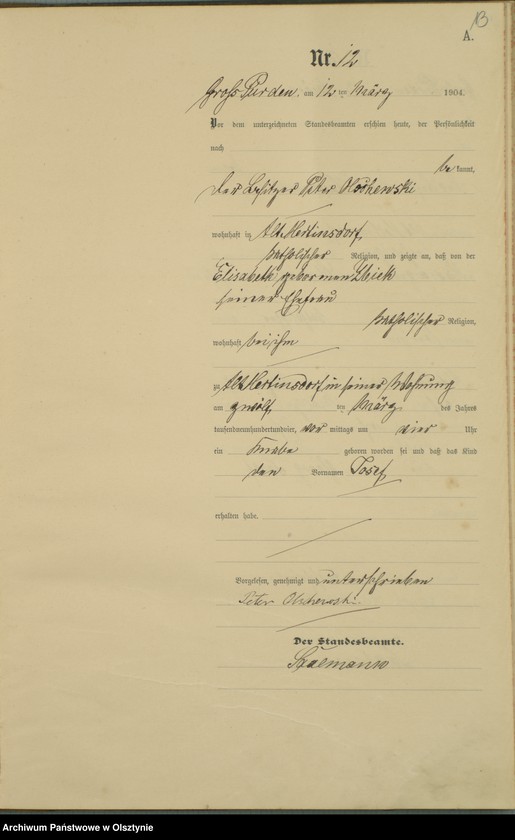 13
A.
Nr. 12
Gross Purden, am 12 ten März 1904.
Vor dem unterzeichneten Standesbeamten erschien heute, der Persönlichkeit
nach
be kannt,
der Besitzer Peter Olschewski
wohnhaft in Alt Mertinsdorf,
katholischer Religion, und zeigte an, daß von der
Elisabeth geborenen Zbick
seiner Ehefrau
katholischer Religion,
wohnhaft bei ihm
zu Alt Mertinsdorf in seiner Wohnung
am zwölf ten März des Jahres
tausendneunhundertundvier, vor mittags um vier Uhr
ein Knabe geboren worden sei und daß das Kind
den Vornamen Josef
erhalten habe.
Vorgelesen, genehmigt und unterschrieben
Peter Olschewski
Der Standesbeamte.
Archiwum Państwowe w Olsztynie